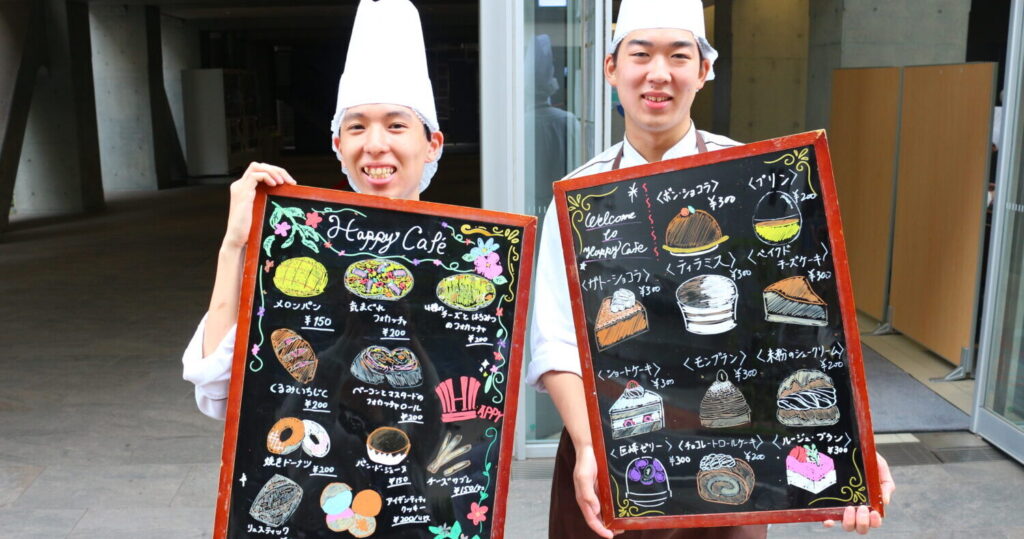 Happy Café
メロンパン
¥150
気まぐれ
フォカッチャ
¥200
4種のチーズとはちみつ
のフォカッチャ
¥200
くるみいちじく
¥200
ベーコンとマスタードの
フォカッチャロール
¥200
HAPPY
焼きドーナツ
¥200
パン・ド・ジェーヌ
¥150
チーズサブレ
¥150/
リュスティック
アイデンティティ
クッキー
¥200/4枚
Welcome
to
Happy Cafe
〈ボン・ショコラ〉
¥300
〈プリン〉
¥200
〈ガトーショコラ〉
¥300
〈ティラミス〉
¥300
〈ベイクド
チーズケーキ〉
¥300
〈ショートケーキ〉
¥300
〈モンブラン〉
¥300
〈米粉のシュークリーム〉
¥200
〈巨峰ゼリー〉
¥300
〈チョコレートロールケーキ〉
¥200
〈ルージュ・ブラン〉
¥300